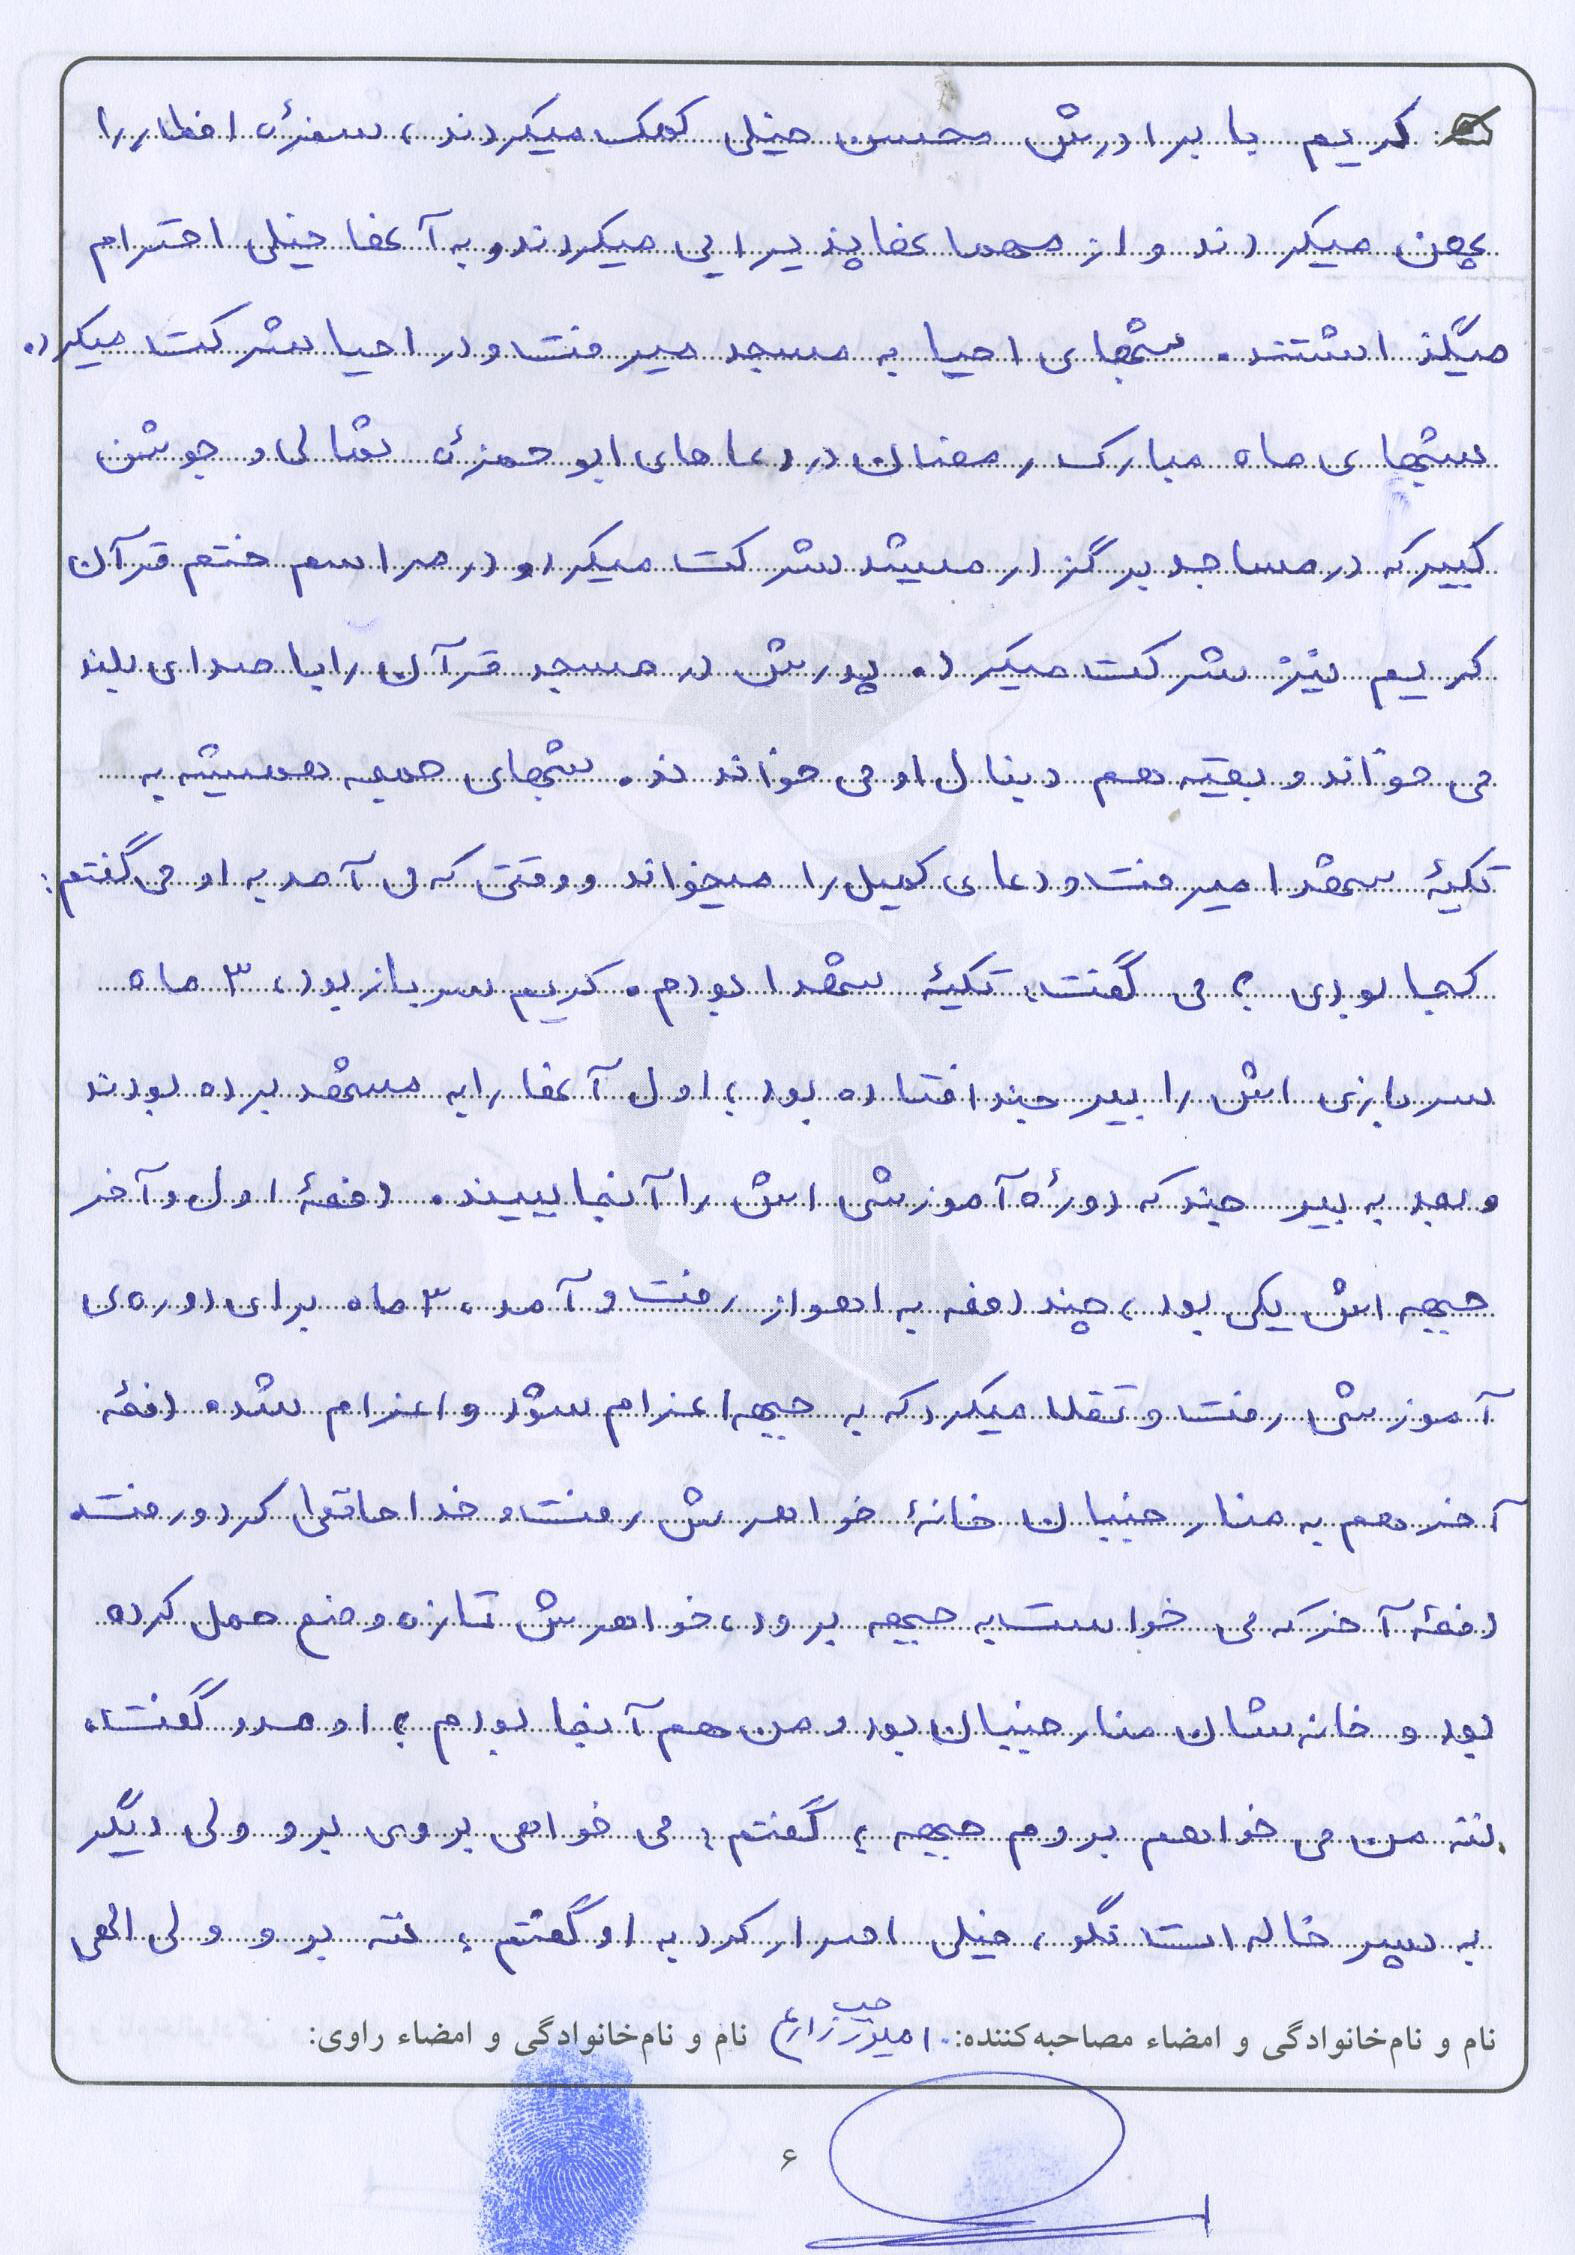 کریم با برادرش محسن خیلی کمک میکردند، سفرۀ افطار را
پهن میکردند و از مهمانها پذیرایی میکردند و به آنها خیلی احترام
میگذاشتند. شبهای احیا به مسجد میرفت و در احیا شرکت میکرد.
شبهای ماه مبارک رمضان در دعاهای ابوحمزۀ ثمالی و جوشن
کبیر که در مساجد برگزار میشد شرکت میکرد و در مراسم ختم قرآن
کریم نیز شرکت میکرد. پدرش در مسجد قرآن را با صدای بلند
می خواند و بقیه هم دنبال او می خواندند. شبهای جمعه همیشه به
تکیۀ شهدا میرفت و دعای کمیل را میخواند و وقتی که می آمد به او می گفتم:
کجا بودی؟ می گفت: تکیۀ شهدا بودم. کریم سرباز بود، ۳ ماه
سربازی اش را بیرجند افتاده بود؛ اول آنها را به مشهد برده بودند
و بعد به بیرجند که دورۀ آموزشی اش را آنجا ببیند. دفعۀ اول و آخر
جبهه اش یکی بود، چند دفعه به اهواز رفت و آمد، ۳ ماه برای دوره ی
آموزشی رفت و تقلا میکرد که به جبهه اعزام شود و اعزام شد، دفعۀ
آخر هم به منارجنبان خانۀ خواهرش رفت و خداحافظی کرد و رفت.
دفعۀ آخر که می خواست به جبهه برود، خواهرش تازه وضع حمل کرده
بود و خانه شان منارجنبان بود و من هم آنجا بودم؛ او مدد گفت:
ننه من می خواهم بروم جبهه؛ گفتم: می خواهی بروی برو ولی دیگر
به پسر خاله ات نگو، خیلی اصرار کرد به او گفتم: ننه برو ولی الهی
نام و نام‌خانوادگی و امضاء مصاحبه‌کننده: نام و نام‌خانوادگی و امضاء راوی:
۶